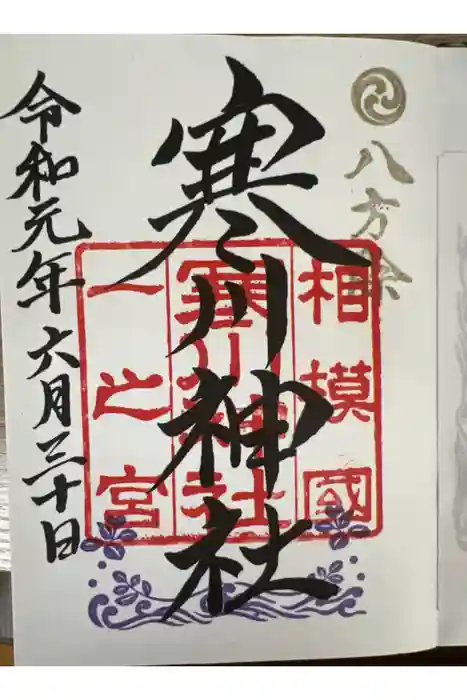 八方除
相模國
寒川神社
一之宮
寒川神社
令和元年六月三十日